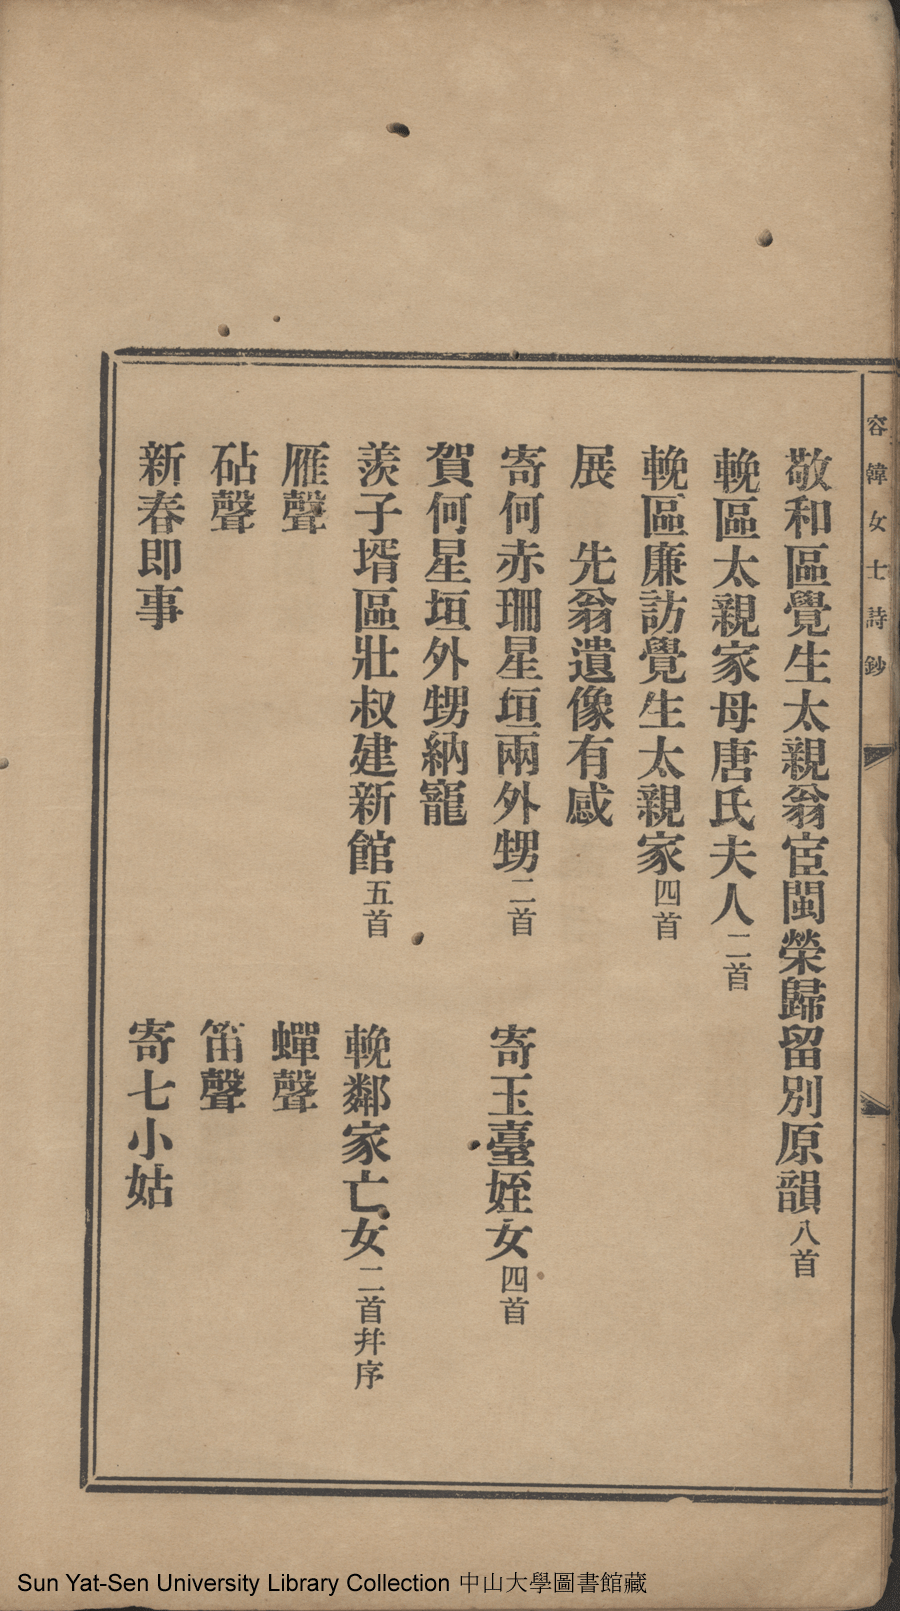 容韓女士詩鈔
敬和區覺生太親翁宦閩榮歸留別原韻八首
輓區太親家母唐氏夫人二首
輓區廉訪覺生太親家四首
展　先翁遺像有感
寄何赤珊星垣兩外甥二首　寄玉臺姪女四首
賀何星垣外甥納寵
羨子壻區壯叔建新館五首　輓鄰家亡女二首幷序
雁聲　蟬聲
砧聲　笛聲
新春即事　寄七小姑
Sun Yat-Sen University Library Collection 中山大學圖書館藏